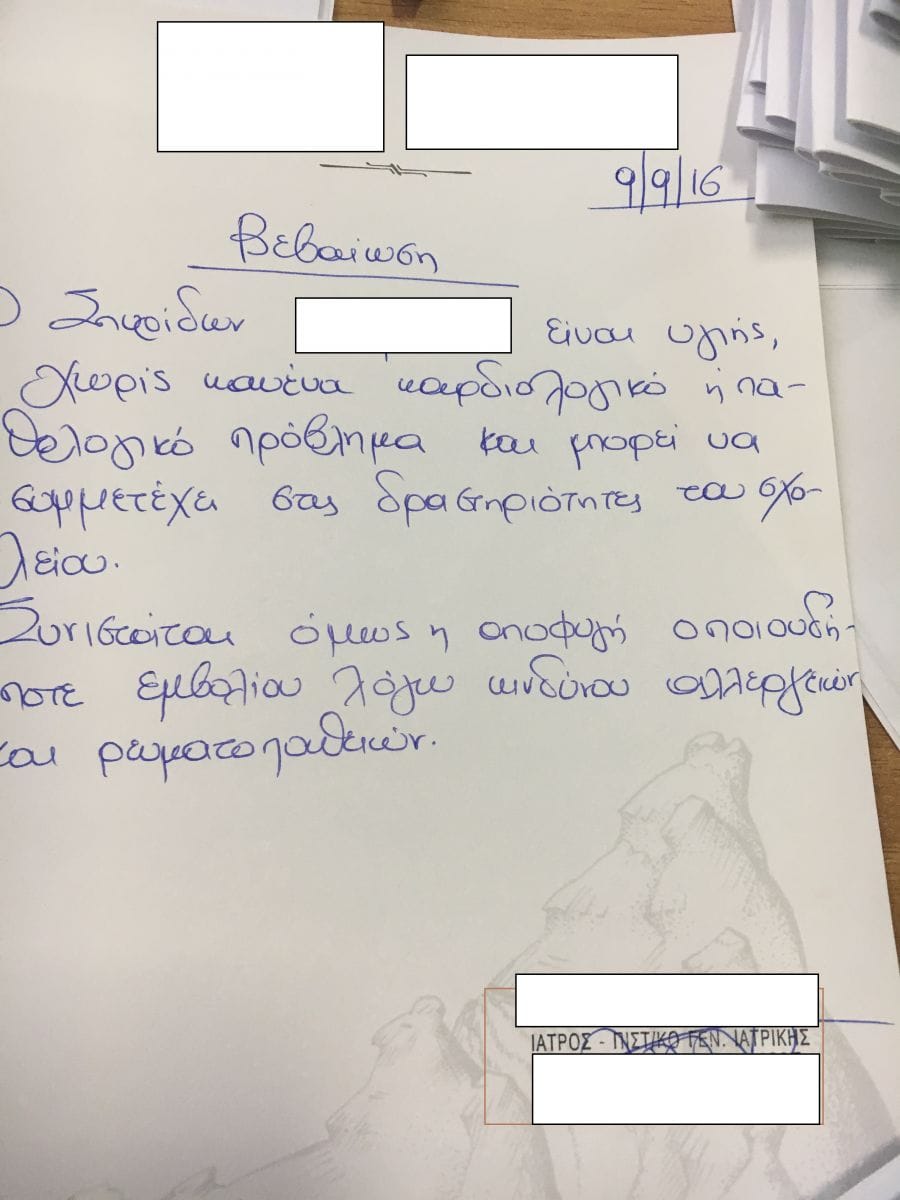 9/9/16
Βεβαίωση
Ο Σπυρίδων είναι υγιής,
χωρίς κανένα καρδιολογικό ή πα-
θολογικό πρόβλημα και μπορεί να
συμμετέχει στις δραστηριότητες του σχο-
λείου.
Συνιστάται όμως η αποφυγή οποιουδή-
ποτε εμβολίου λόγω κινδύνου αλλεργειών
και ρευματοπαθειών.
ΙΑΤΡΟΣ - ΠΙΣΤ/ΚΟ ΓΕΝ. ΙΑΤΡΙΚΗΣ